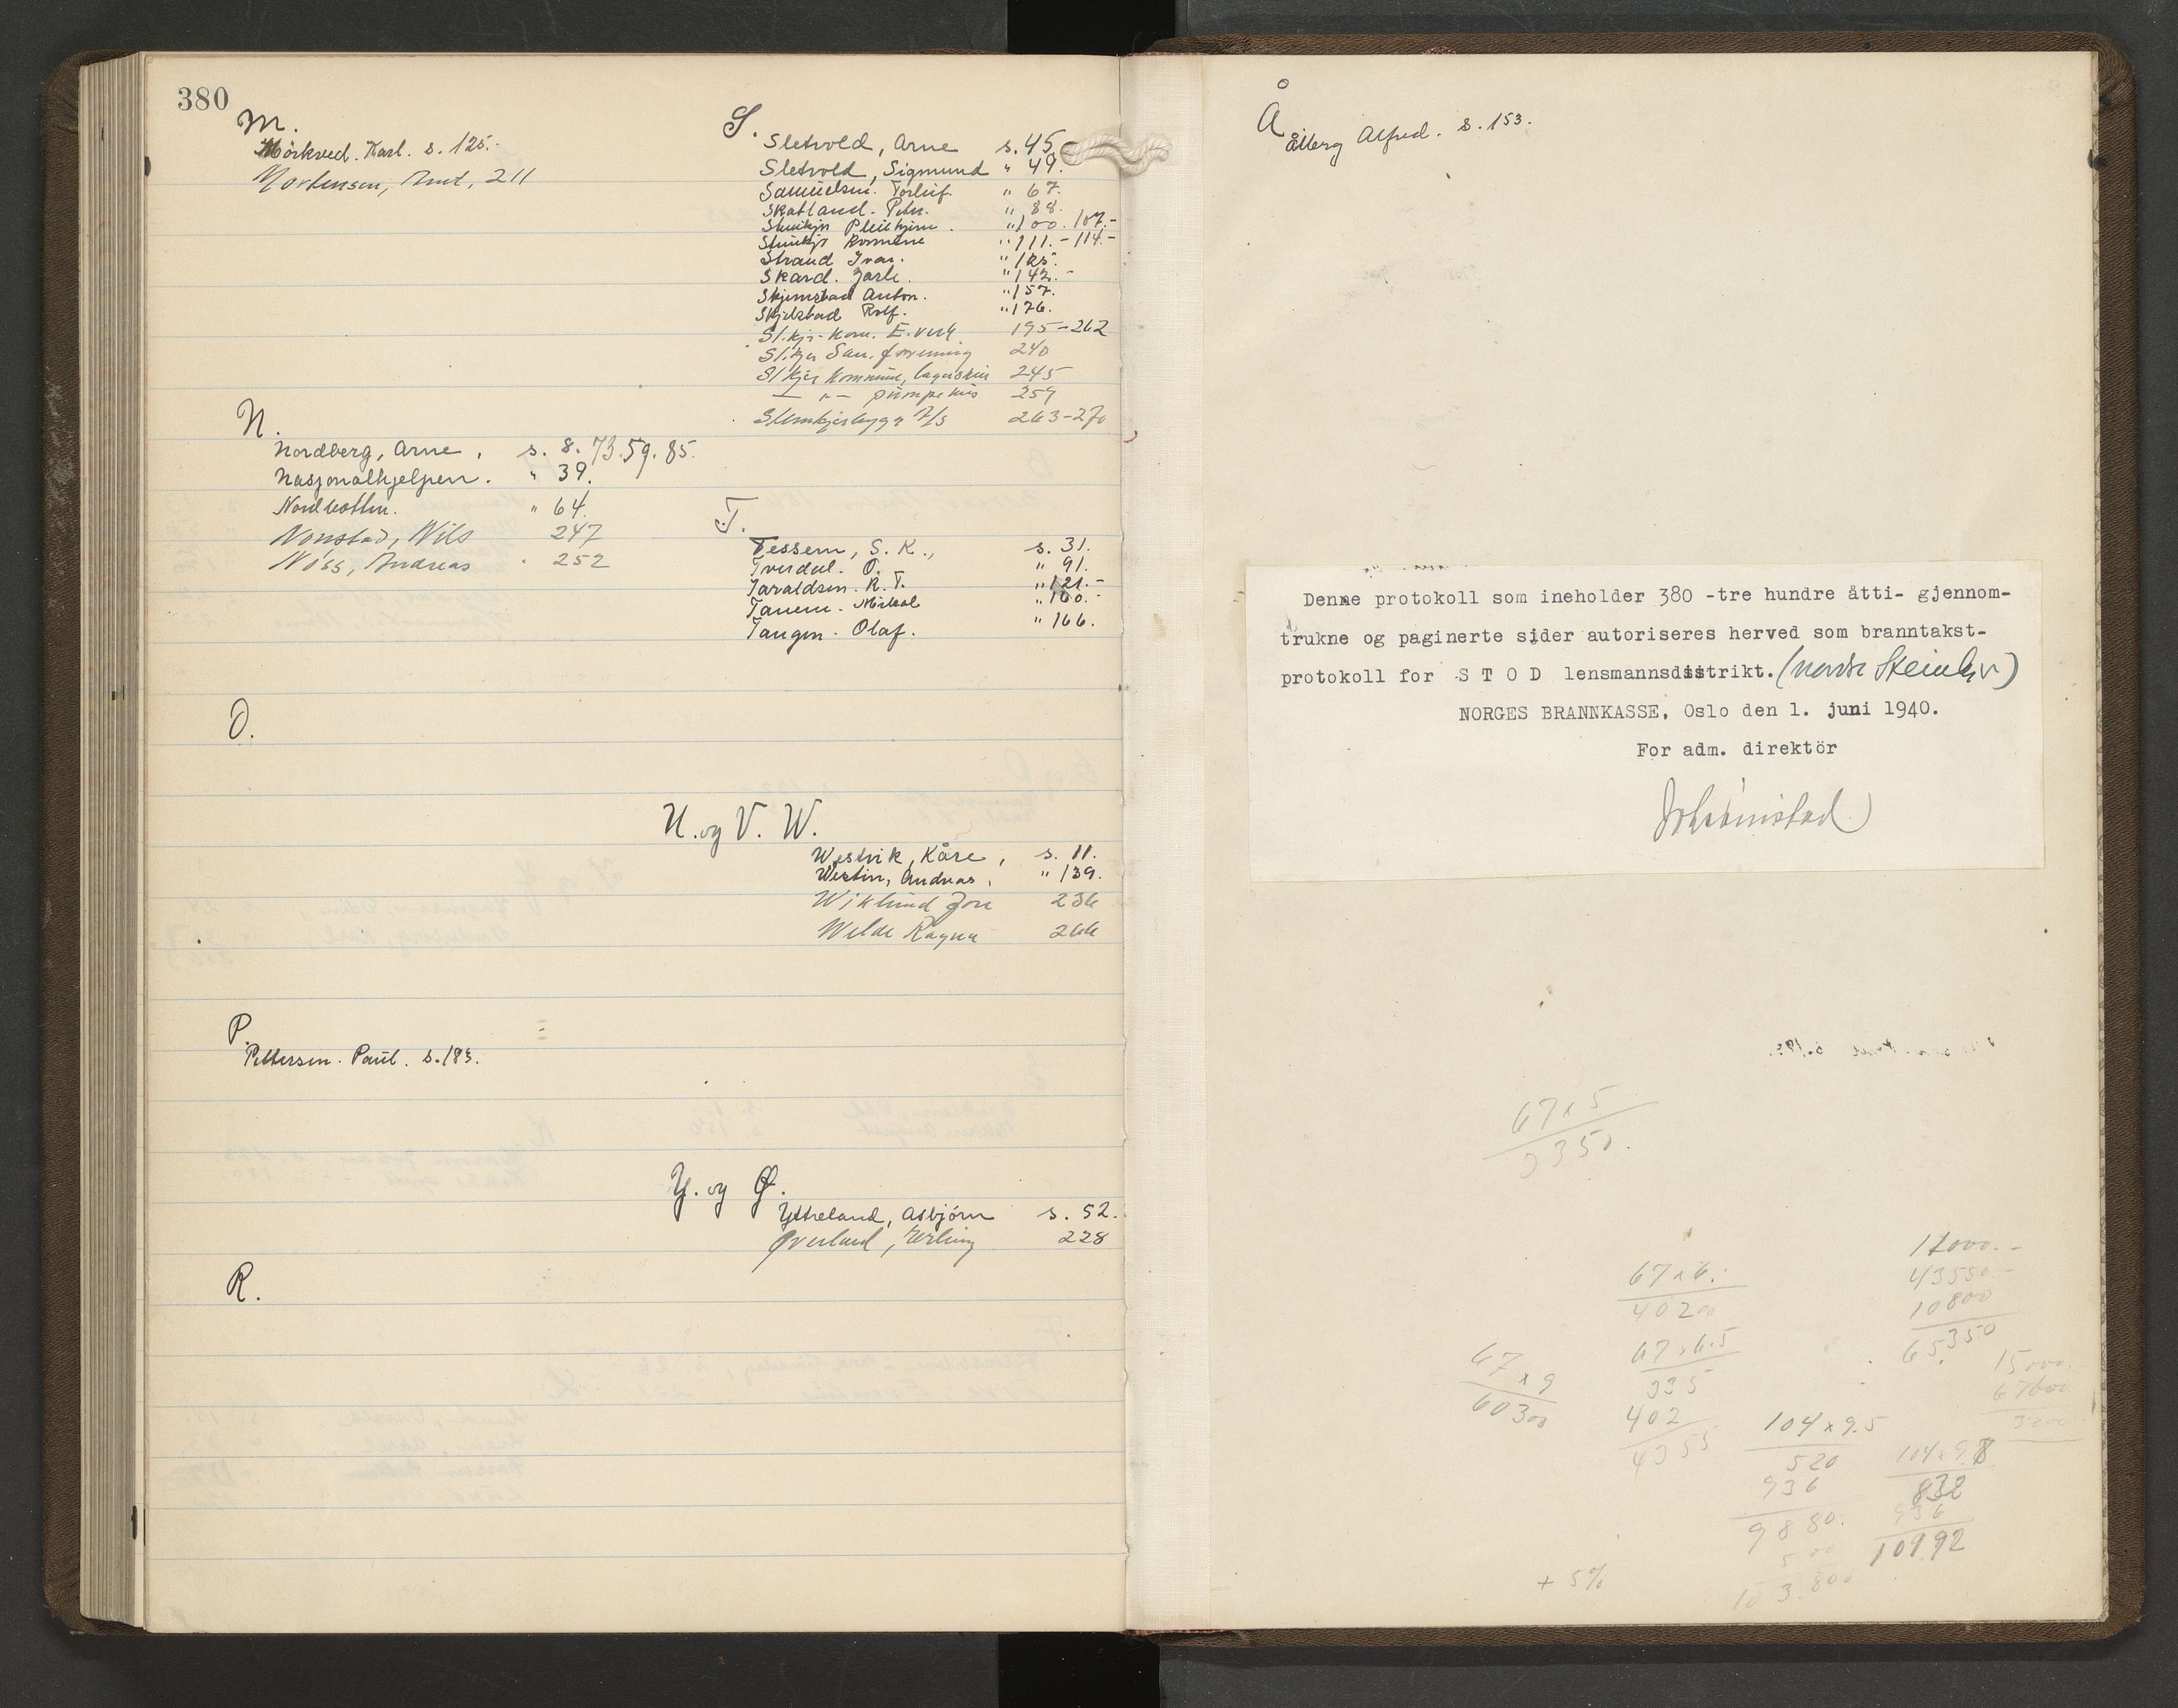 380
M.
Mörkved. Karl. s. 125.-
Mortensen, Arnt, 211
N.
Nordberg, Arne, s. 8. 73. 59. 85.
Nasjonalhjelpen. " 39.
Nordbotten. " 64.
Nonstad, Nils 247
Nöss, Andreas 252
O.
P.
Pettersen. Paul. s. 183.
R.
S.
Sletvold, Arne s. 45.
Sletvold, Sigmund " 49.
Samuelsen. Torleif. " 67.
Skatland. Peter. " 88.
Steinkjer Pleiehjem. " 100. 107.-
Steinkjer Kommune " 111.-114.-
Strand Ivar. " 125.
Skard. Jarle. " 142.-
Skjemstad Anton. " 157.
Skjelstad Rolf. " 176.
St.kjer Kom. E.verk 195-262
St.kjer San. forening 240
St.kjer Kommune, lagerskur 245
— " — pumpehus 259
Steinkjerbygg A/S 263-270
T.
Tessem, S. K., s. 31.
Tverdal. O. " 91.
Taraldsen. R. T. " 121.-
Tanem. Mikal " 160.-
Tangen. Olaf. " 166.
U. og V. W.
Westvik, Kåre, s. 11.
Westin, Andreas, " 139.
Wiklund Jon 236
Welde Ragna 266
Y. og Ø.
Ytreland, Asbjörn s. 52.
Øverland, Erling 228
Å
Ålberg Alfred. s. 153.
Denne protokoll som ineholder 380 -tre hundre åtti- gjennom-
trukne og paginerte sider autoriseres herved som branntakst-
protokoll for S T O D lensmannsdistrikt. (nordre Steinkjer)
NORGES BRANNKASSE, Oslo den 1. juni 1940.
For adm. direktör
67 x 5
3350.
67 x 6.
40200
67 x 6.5
335
402
4355
67 x 9
60300
104 x 9.5
520
936
9880.
500
103.800
+ 5%
43550.-
10800
65350
15000
67600
104 x 9.8
832
936
10192